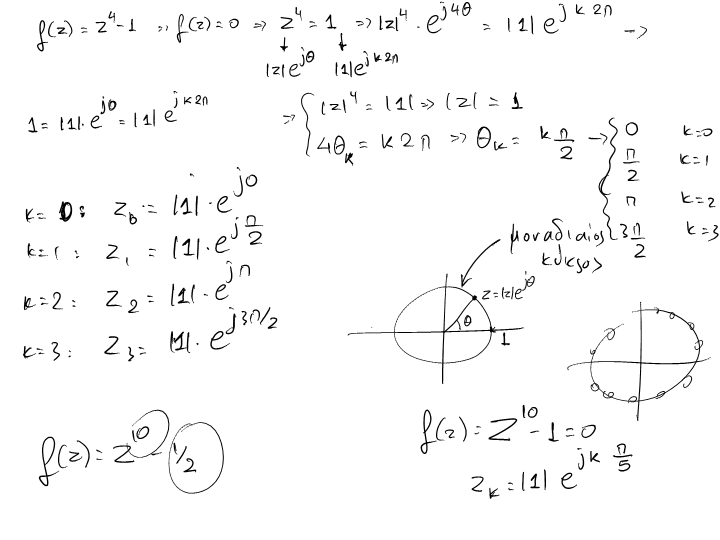 f(z) = z⁴-1 ,, f(z)=0 ⇒ z⁴ = 1 ⇒ |z|⁴ · e^{j4θ} = |1| e^{jk2π} →
↓ ↓
|z|e^{jθ} |1|e^{jk2π}
1 = |1|·e^{j0} = |1| e^{jk2π}
⇒ { |z|⁴ = |1| ⇒ |z| = 1
4θ_k = k2π ⇒ θ_k = kπ/2 → { 0 k=0
π/2 k=1
π k=2
3π/2 k=3
k=0: z₀ = |1|·e^{j0}
k=1: z₁ = |1|·e^{jπ/2}
k=2: z₂ = |1|·e^{jπ}
k=3: z₃ = |1|·e^{j3π/2}
μοναδιαίος
κύκλος
z=|z|e^{jθ}
θ
1
f(z) = z¹⁰ - 1/2
f(z) = z¹⁰ - 1 = 0
z_k = |1| e^{jkπ/5}